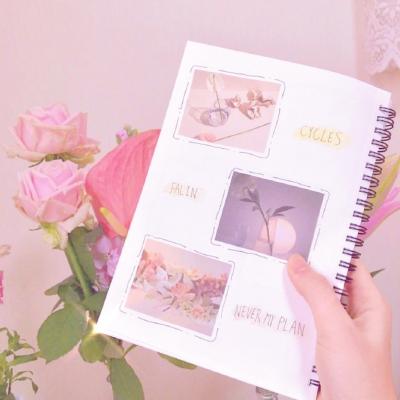 CYCLES
FALIN
NEVER MY PLAN